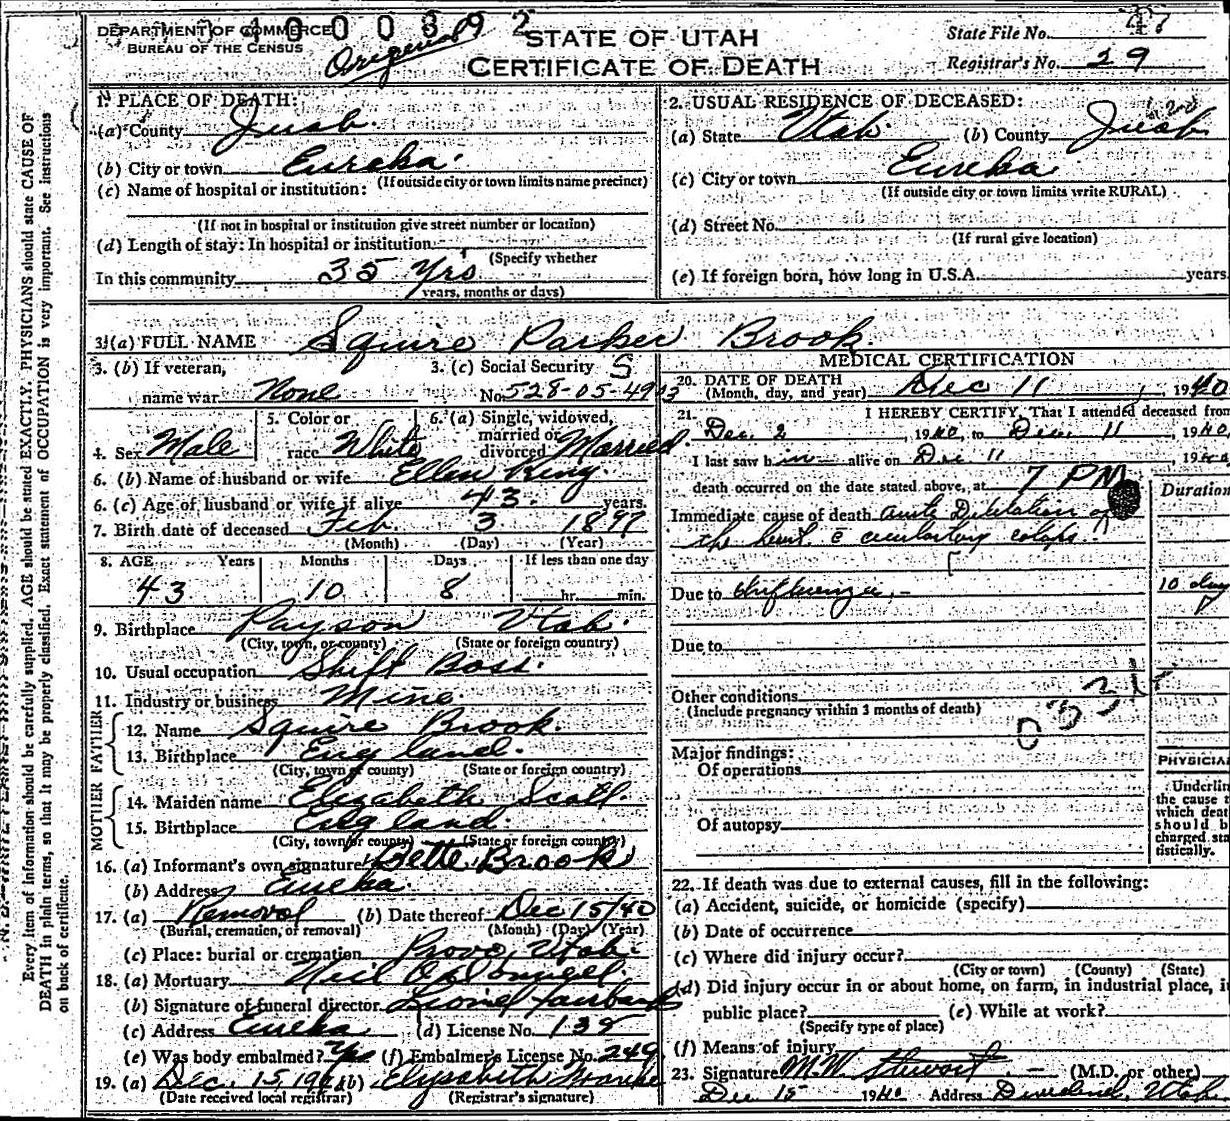 DEPARTMENT OF COMMERCE
BUREAU OF THE CENSUS
Original
STATE OF UTAH
CERTIFICATE OF DEATH
State File No. 47
Registrar's No. 29
N. B.
Every item of information should be carefully supplied. AGE should be stated EXACTLY. PHYSICIANS should state CAUSE OF
DEATH in plain terms, so that it may be properly classified. Exact statement of OCCUPATION is very important. See instructions
on back of certificate.
1. PLACE OF DEATH:
(a) County Juab.
(b) City or town Eureka.
(If outside city or town limits name precinct)
(c) Name of hospital or institution:
(If not in hospital or institution give street number or location)
(d) Length of stay: In hospital or institution
(Specify whether
In this community 35 Yrs
years, months or days)
2. USUAL RESIDENCE OF DECEASED:
(a) State Utah. (b) County Juab
(c) City or town Eureka
(If outside city or town limits write RURAL)
(d) Street No.
(If rural give location)
(e) If foreign born, how long in U.S.A. years.
3. (a) FULL NAME Squire Parker Brook.
3. (b) If veteran,
name war None
3. (c) Social Security S
No. 528-05-4903
4. Sex Male
5. Color or
race White
6. (a) Single, widowed,
married or
divorced Married
6. (b) Name of husband or wife Ellen King.
6. (c) Age of husband or wife if alive 43. years.
7. Birth date of deceased Feb. 3 1897
(Month) (Day) (Year)
8. AGE Years Months Days If less than one day
43 10 8 hr. min.
9. Birthplace Payson Utah.
(City, town, or county) (State or foreign country)
10. Usual occupation Shift Boss.
11. Industry or business Mine
FATHER
12. Name Squire Brook.
13. Birthplace England.
(City, town or county) (State or foreign country)
MOTHER
14. Maiden name Elizabeth Scott.
15. Birthplace England
(City, town or county) (State or foreign country)
16. (a) Informant's own signature Brook
(b) Address Eureka.
17. (a) Removal (b) Date thereof Dec 15/40
(Burial, cremation, or removal) (Month) (Day) (Year)
(c) Place: burial or cremation Provo, Utah.
18. (a) Mortuary Neil O'Donnell.
(b) Signature of funeral director Lionel Fairbanks
(c) Address Eureka (d) License No. 138
(e) Was body embalmed? Yes (f) Embalmer's License No. 249
19. (a) Dec. 15, 1940 (b) Elysabeth
(Date received local registrar) (Registrar's signature)
MEDICAL CERTIFICATION
20. DATE OF DEATH
(Month, day, and year) Dec 11, 1940
21. I HEREBY CERTIFY, That I attended deceased from
Dec. 2, 1940, to Dec. 11, 1940
I last saw him alive on Dec 11 1940
death occurred on the date stated above, at 7 PM
Duration
Immediate cause of death Acute Dilitation of
the heart c circulatory colaps.
Due to Influenza,- 10 days
Due to
Other conditions
(Include pregnancy within 3 months of death)
Major findings:
Of operations
Of autopsy
PHYSICIA
Underlin
the cause
which deat
should b
charged sta
tistically.
22. If death was due to external causes, fill in the following:
(a) Accident, suicide, or homicide (specify)
(b) Date of occurrence
(c) Where did injury occur?
(City or town) (County) (State)
(d) Did injury occur in or about home, on farm, in industrial place, i
public place? (e) While at work?
(Specify type of place)
(f) Means of injury
23. Signature M.W. Stewart. (M.D. or other)
Dec 15 1940 Address Dividend, Utah